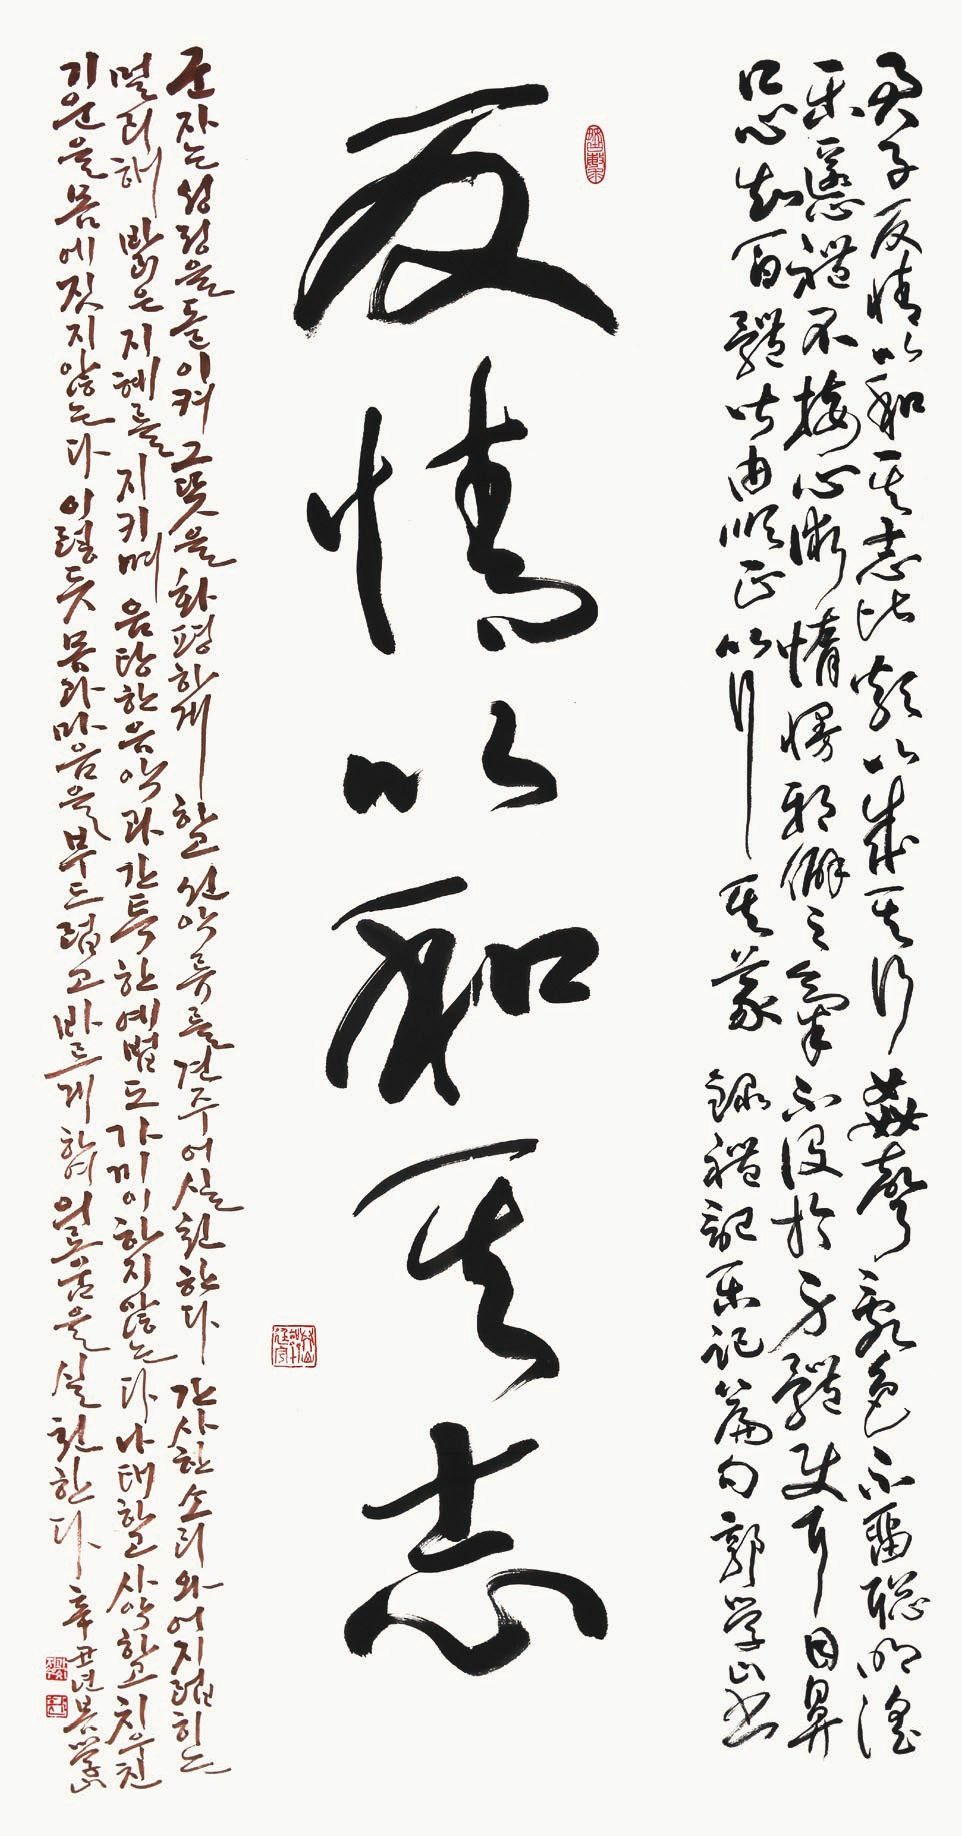 君子反情以和其志比類以成其行姦聲亂色不留聰明淫
樂慝禮不接心術惰慢邪僻之氣不設於身體使耳目鼻
口心知百體皆由順正以行其義 錄禮記樂記篇句 郭學山書
反情以和其志
군자는 성정을 돌이켜 그 뜻을 화평하게 하고 선악류를 견주어 실천한다 간사한 소리와 어지러운
멀리해 밝은 지혜를 지키며 음탕한 음악과 간특한 예법도 가까이하지 않는다 나태하고 사악하고 치우친
기운을 몸에 짓지 않는다 이렇듯 몸과 마음을 부드럽고 바르게 하여 의로움을 실천한다 辛丑년 봄 學山